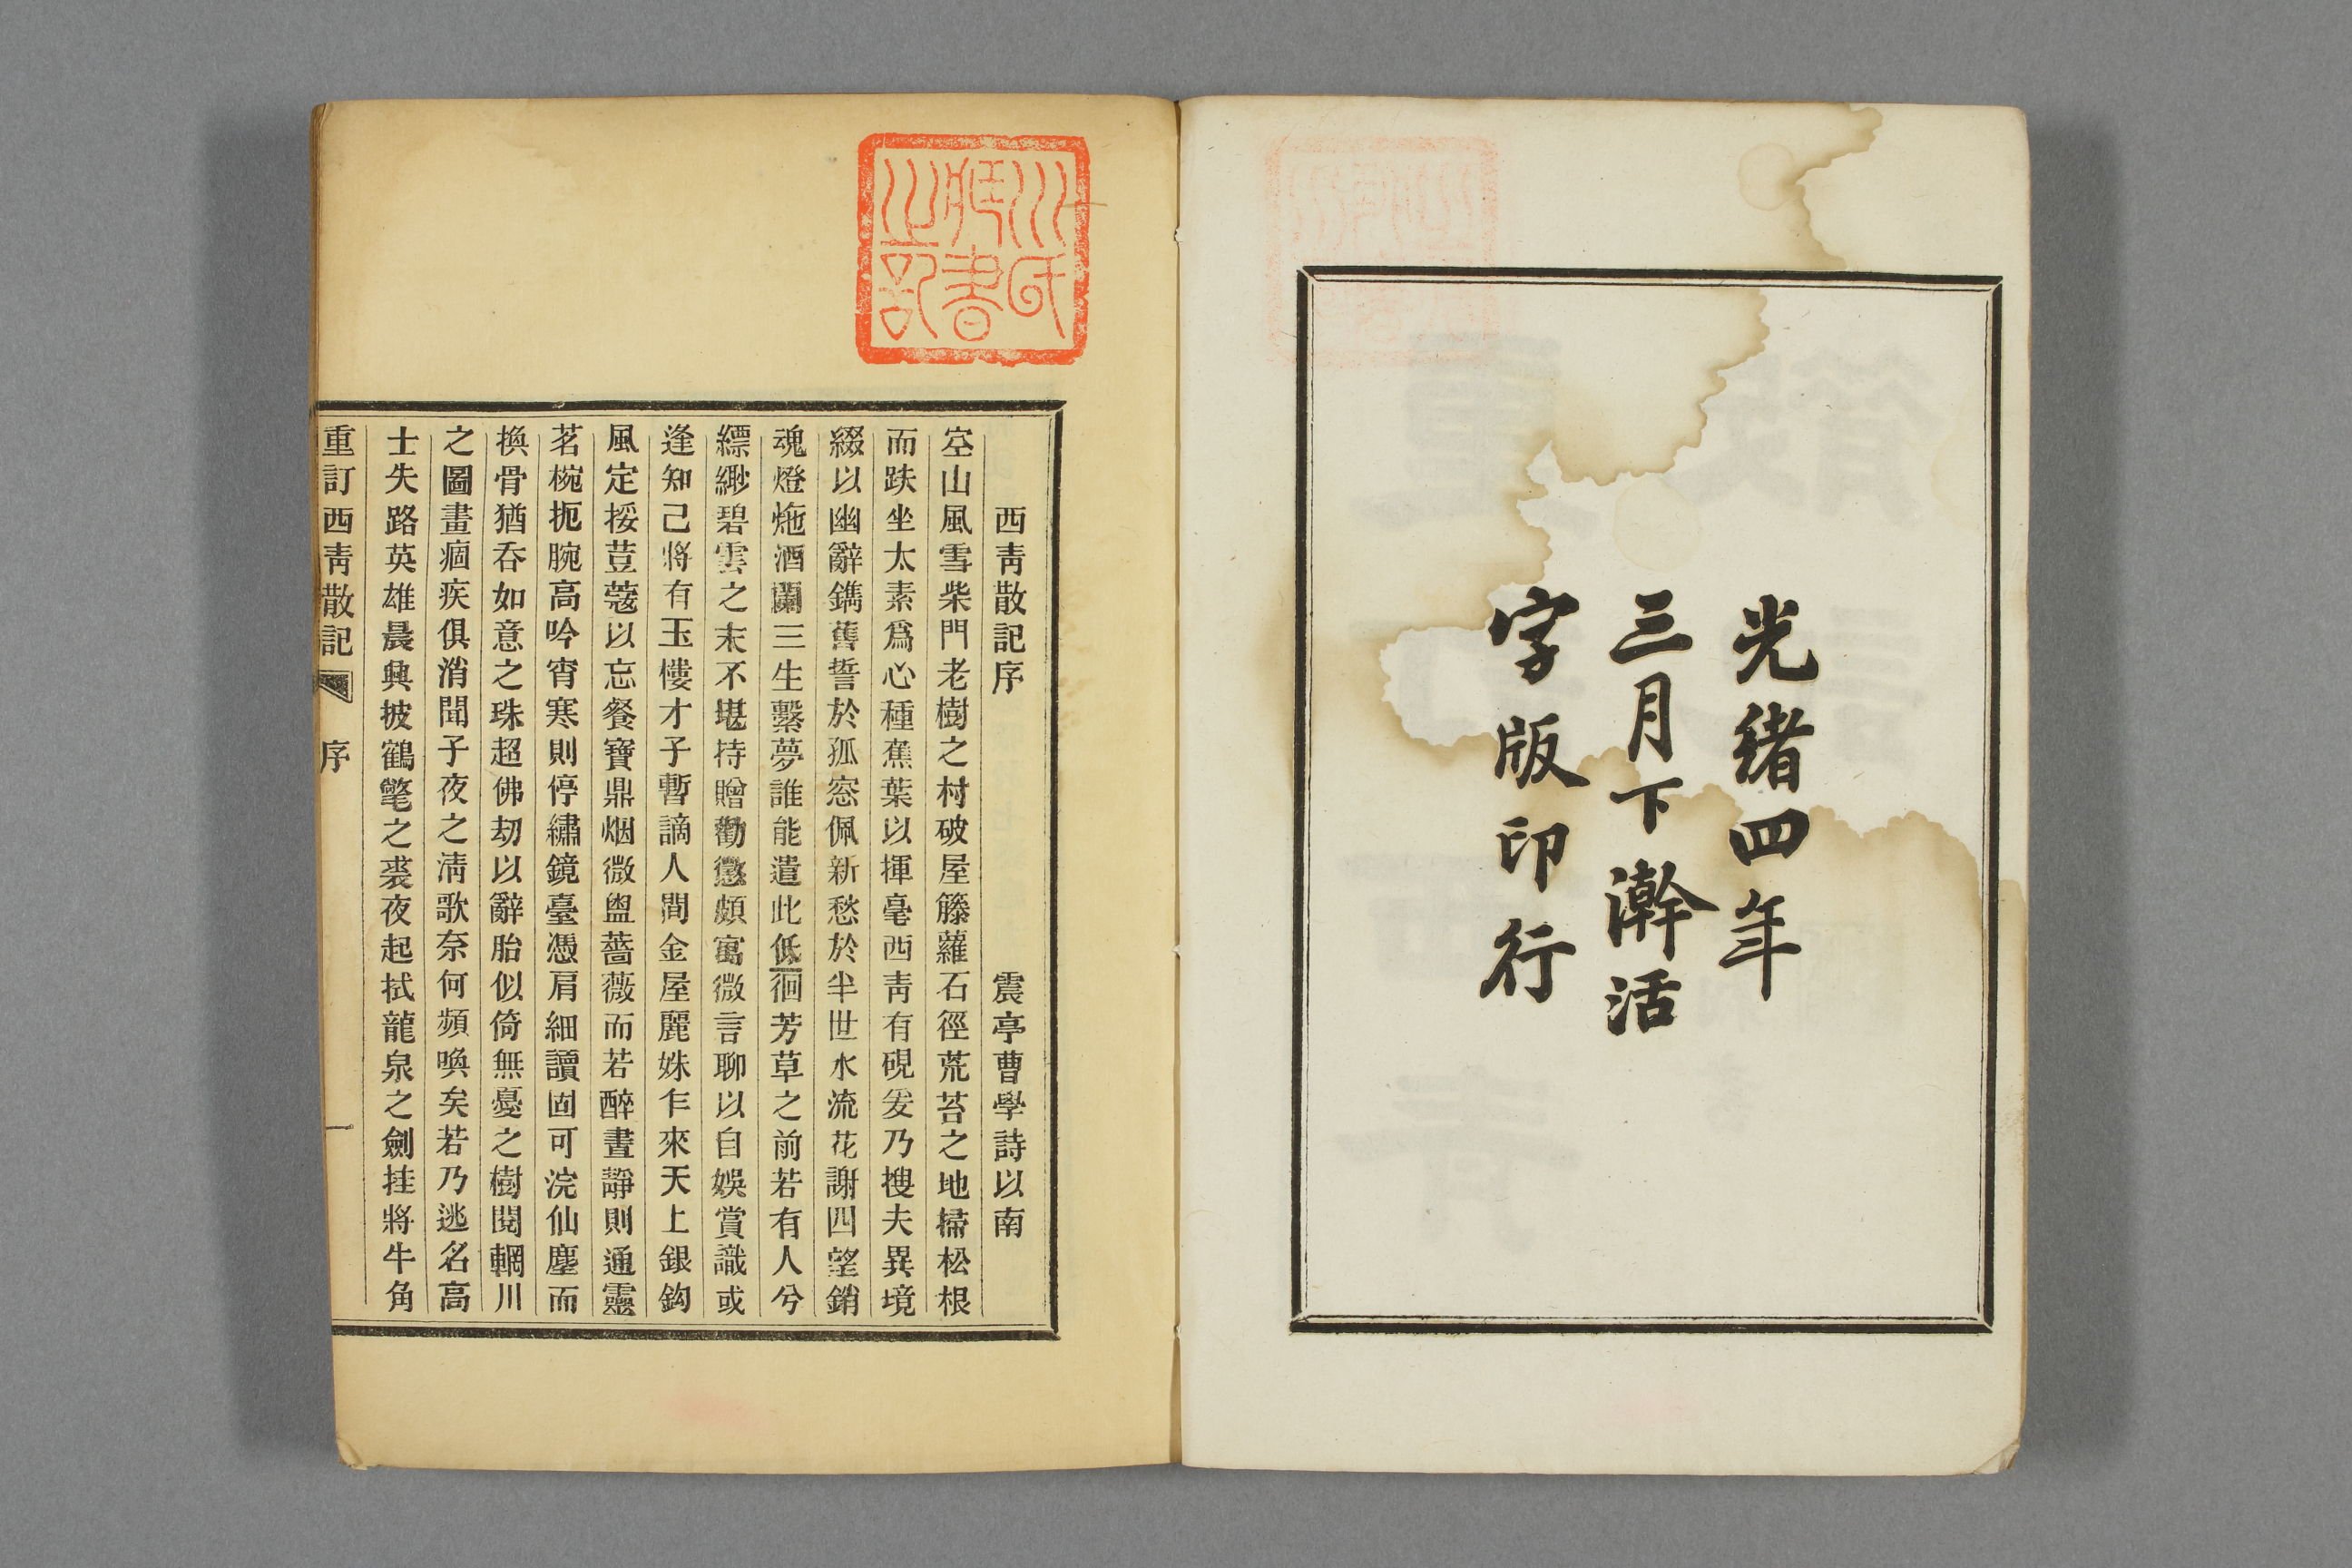 光緒四年
三月下澣活
字版印行
西靑散記序　震亭曹學詩以南
空山風雪柴門老樹之村破屋籐蘿石徑荒苔之地掃松根
而趺坐太素爲心種蕉葉以揮毫西靑有硯爰乃搜夫異境
綴以幽辭鐫舊誓於孤窓佩新愁於半世水流花謝四望銷
魂燈炧酒闌三生繫夢誰能遣此低徊芳草之前若有人兮
縹緲碧雲之末不堪持贈勸懲頗寓微言聊以自娛賞識或
逢知己將有玉樓才子暫謫人間金屋麗姝乍來天上銀鈎
風定挼荳蔻以忘餐寶鼎烟微盥薔薇而若醉晝靜則通靈
茗椀扼腕高吟宵寒則停繡鏡臺憑肩細讀固可浣仙塵而
換骨猶呑如意之珠超佛劫以辭胎似倚無憂之樹閱輞川
之圖畫痼疾俱消聞子夜之淸歌奈何頻喚矣若乃逃名高
士失路英雄晨興披鶴氅之裘夜起拭龍泉之劍挂將牛角
重訂西靑散記　序　一
川氏
書
之記